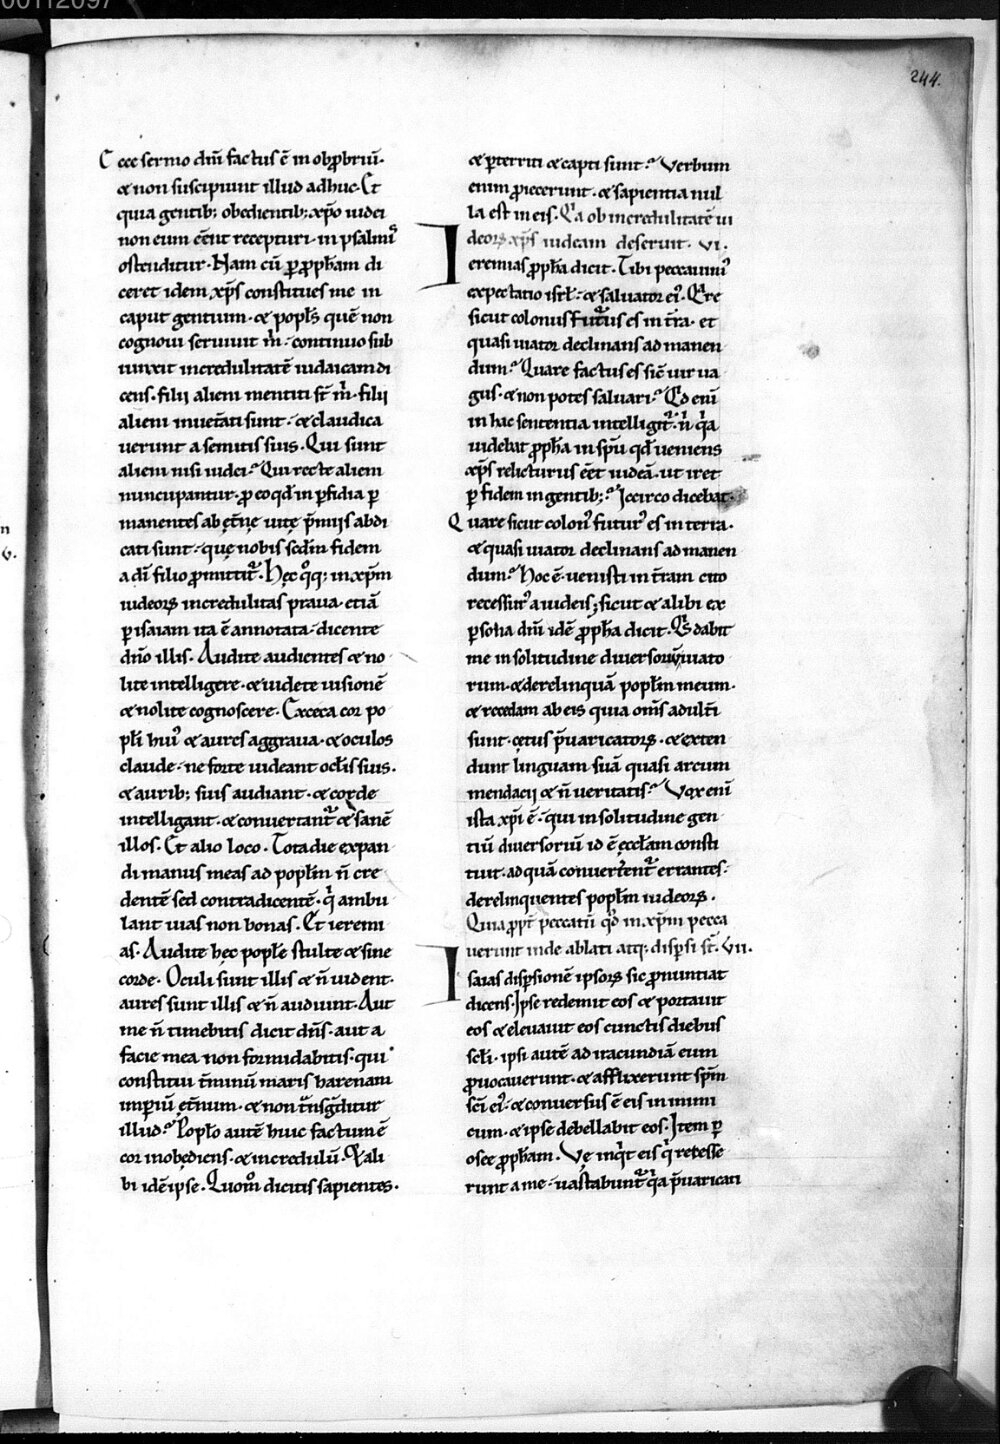 00112097
244.
Ecce sermo dnī factus ē in obꝓbriū.
& non suscipiunt illud adhuc. Et
quia gentib; obedientib; xp̄o iudei
non eum eēnt recepturi. in psalmis
ostenditur. Nam cū ꝑ ꝓph̄am di
ceret idem xp̄s constitues me in
caput gentium. & popl̄s quē non
cognoui seruiuit m̄. continuo sub
iunxit incredulitatē iudaicam di
cens. filii alieni mentiti st̄ m̄. filii
alieni inuet̄ati sunt. & claudica
uerunt a semitis suis. Qui sunt
alieni nisi iudei? Qui recte alieni
nuncupantur. ꝓ eo qd̄ in ꝑfidia ꝑ
manentes ab ęt̄nę uitę p̄mijs abdi
cati sunt. quę nobis scd̄m fidem
a dī filio ꝓmittit᷑. Hęc qͦq; in xp̄m
iudeoꝝ incredulitas praua. etiā
ꝑ isaiam ita ē annotata. dicente
dn̄o illis. Audite audientes & no
lite intelligere. & uidete uisionē
& nolite cognoscere. Exceca cor po
pl̄i huiꝰ & aures aggraua. & oculos
claude. ne forte uideant ocl̄is suis.
& aurib; suis audiant. & corde
intelligant. & conuertant᷑ & sanē
illos. Et alio loco. Tota die expan
di manus meas ad popl̄m n̄ cre
dentē sed contradicentē. qͥ ambu
lant uias non bonas. Et ieremi
as. Audite hęc popl̄e stulte & sine
corde. Oculi sunt illis & n̄ uident.
aures sunt illis & n̄ audiunt. Aut
me n̄ timebitis dicit dn̄s. aut a
facie mea non formidabitis. qui
constitui t̄minū maris harenam
imꝑiū ęt̄num. & non t̄nsgͣditur
illud? Popl̄o autē huic factum ē
cor inobędiens. & incredulū. Et ali
bi idē ipse. Quom̄ dicitis sapientes.
& ꝑterriti & capti sunt? Verbum
enim ꝓiecerunt. & sapientia nul
la est in eis. Qͥa ob incredulitatē iu
deoꝝ xp̄s iudeam deseruit. VI.
Ieremias ꝓph̄a dicit. Tibi peccauimꝰ
expectatio isrl̄. & saluator eiꝰ. Qͣre
sicut colonus futurus es in t̄ra. et
quasi uiator declinans ad manen
dum? Quare factus es sic̄ uir ua
gus. & non potes saluari? Qd̄ enī
in hac sententia intelligit᷑. n̄ qͥa
uidebat ꝓph̄a in sp̄u qd̄ ueniens
xp̄s relicturus eēt iudeā. ut iret
ꝑ fidem in gentib;? Iccirco dicebat.
Quare sicut colonꝰ futurꝰ es in terra.
& quasi uiator declinans ad manen
dum? Hoc ē. uenisti in t̄ram cito
recessurꝰ a iudeis; sicut & alibi ex
ꝑsona dnī idē ꝓph̄a dicit. Qͥs dabit
me in solitudine diuersoriū uiato
rum. & derelinquā popl̄m meum.
& recedam ab eis quia om̄s adult̄i
sunt. cętus p̄uaricatoꝝ. & exten
dunt linguam suā quasi arcum
mendacij & n̄ ueritatis? Vox enī
ista xp̄i ē. qui in solitudine gen
tiū diuersoriū id ē ęccl̄am consti
tuit. ad quā conuertent᷑ errantes.
derelinquentes popl̄m iudeoꝝ.
Quia ꝓpt̄ peccatū qͦd in xp̄m pecca
uerunt inde ablati atq; disꝑsi st̄. VII.
Isaias disꝑsionē ipsoꝝ sic ꝓnuntiat
dicens. Ipse redemit eos & portauit
eos & eleuauit eos cunctis diebus
scl̄i. ipsi autē ad iracundiā eum
ꝓuocauerunt. & afflixerunt sp̄m
scī eiꝰ. & conuersus ē eis in inimi
cum. & ipse debellabit eos. Item ꝑ
osee ꝓph̄am. Vę inqͥt eis qͥ recesse
runt a me. uastabunt᷑ qͥa p̄uaricati